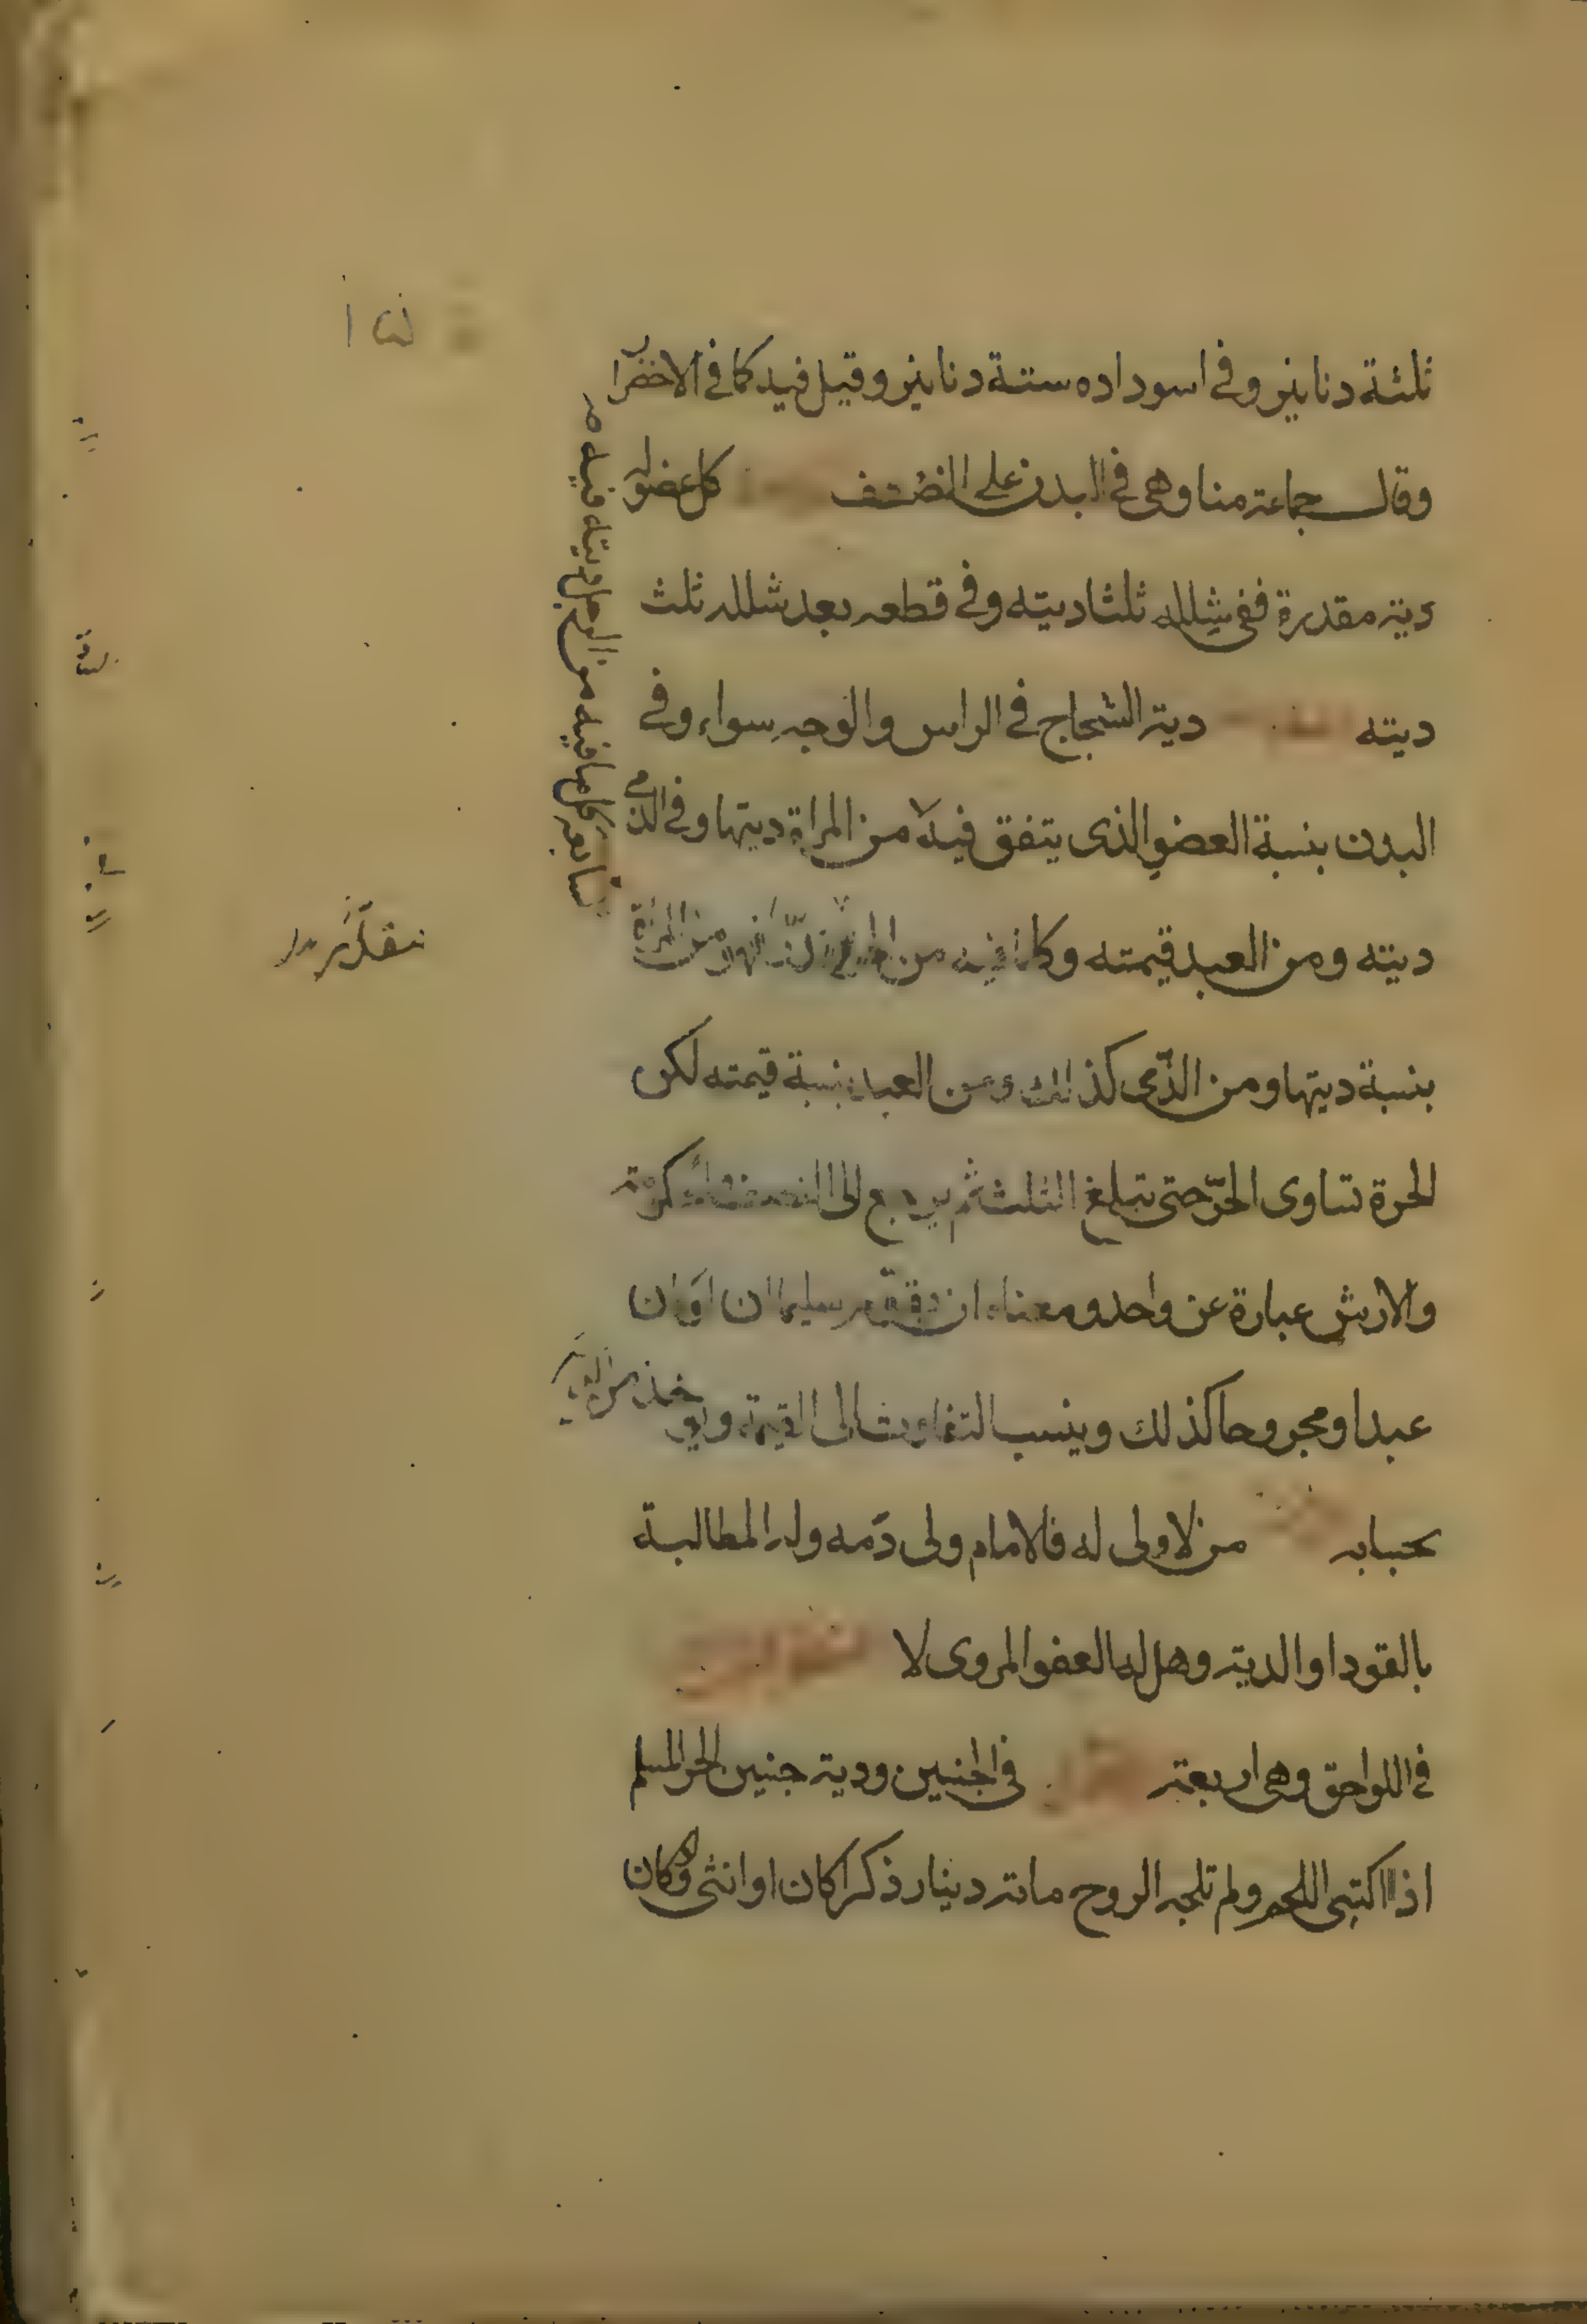 ثلثة دنانير وفي اسوداده ستة دنانير وقيل فيه كما في الاخضرار
وقال جماعة منا وهى في البدن على النصف كل عضو له
دية مقدرة ففى شلله ثلثا ديته وفى قطعه بعد شلله ثلث
ديته دية الشجاج في الراس والوجه سواء وفى
البدن بنسبة العضو الذى يتفق فيه من المراة ديتها وفى الذمى
ديته ومن العبد قيمته وكلما فيه من الحر فهو من المراة
بنسبة ديتها ومن الذمى كذلك ومن العبد بنسبة قيمته لكن
الحرة تساوى الحر حتى تبلغ الثلث ثم يرجع الى النصف
والارش عبارة عن واحد ومعناه ان يقوم سليما ان
عبدا ومجروحا كذلك وينسب التفاوت الى القيمة ويوخذ من الدية
بحسابه من لا ولى له فالامام ولى دمه وله المطالبة
بالقود او الدية وهل له العفو المروى لا
في اللواحق وهى اربعة في الجنين ودية جنين الحر المسلم
اذا اكتسى اللحم ولم تلجه الروح مائة دينار ذكرا كان او انثى ولو كان
سابعة كل ما فيه من الرجل ديته فيه